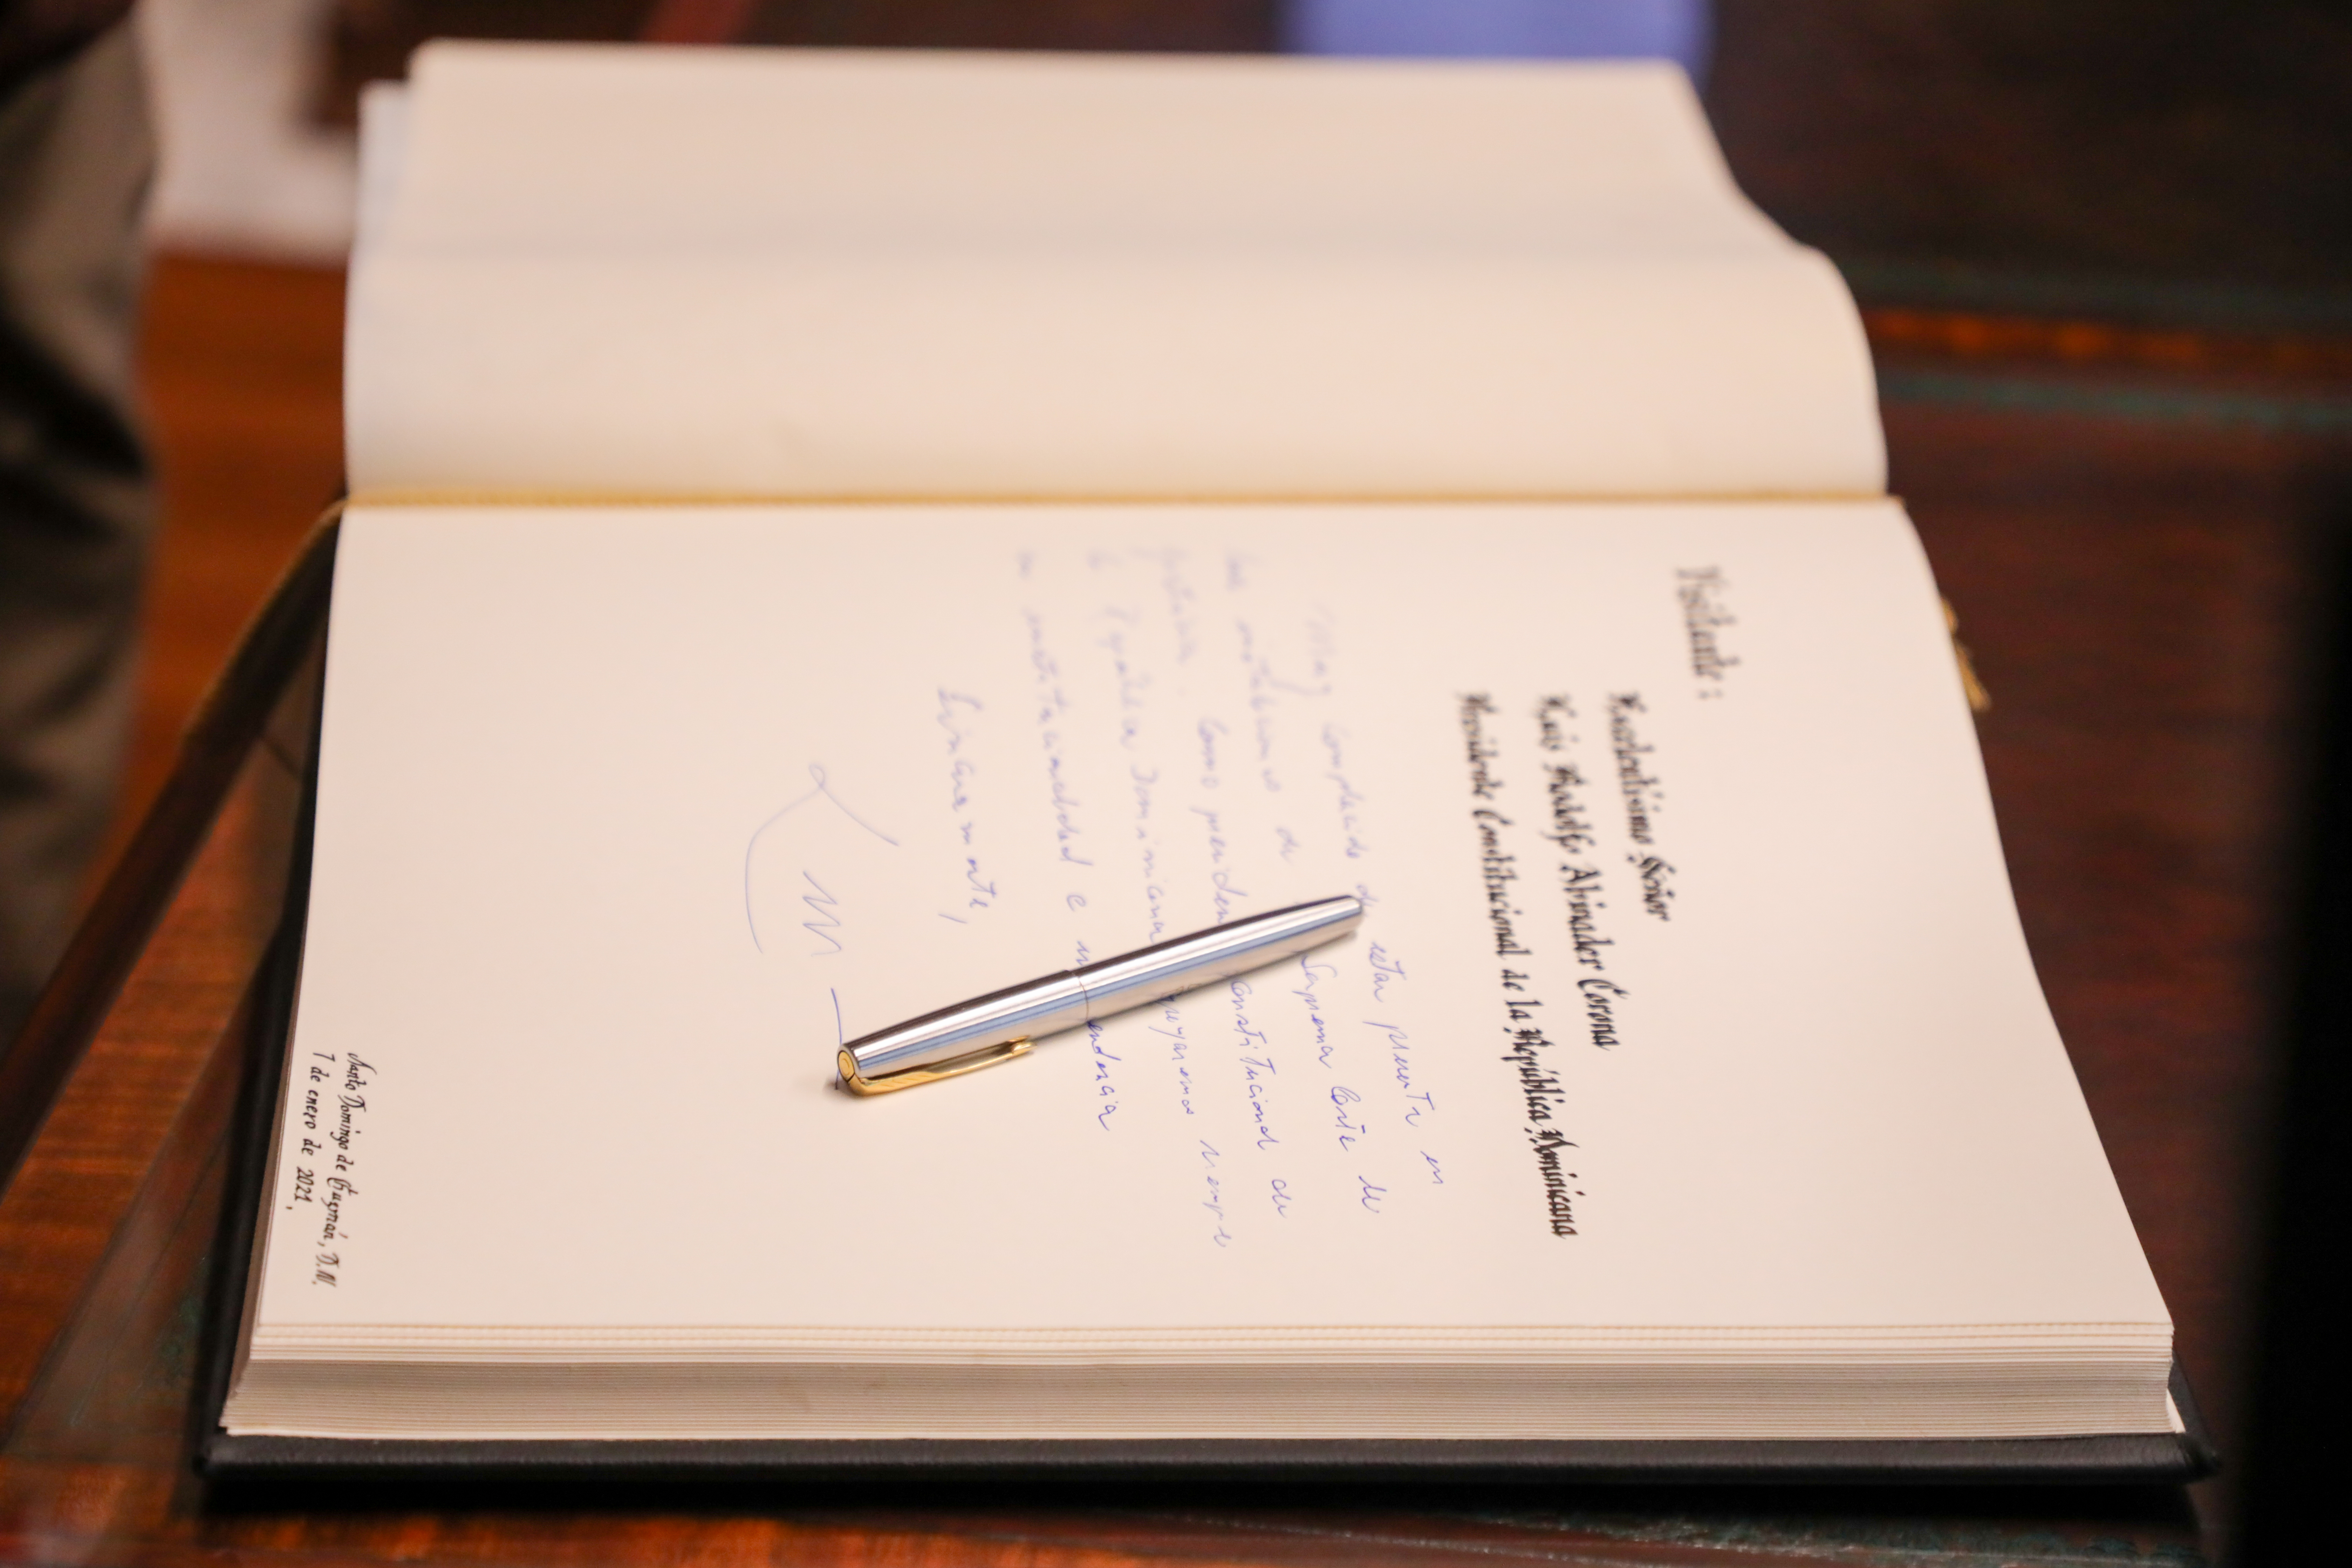 Visitante :
Excelentísimo Señor
Luis Rodolfo Abinader Corona
Presidente Constitucional de la República Dominicana
Muy complacido de estar presente en
de Suprema Corte de
Como constitucional de
República Dominicana apoyaremos siempre
su institucionalidad e
Sinceramente,
Santo Domingo de Guzmán, D.N.
7 de enero de 2021,